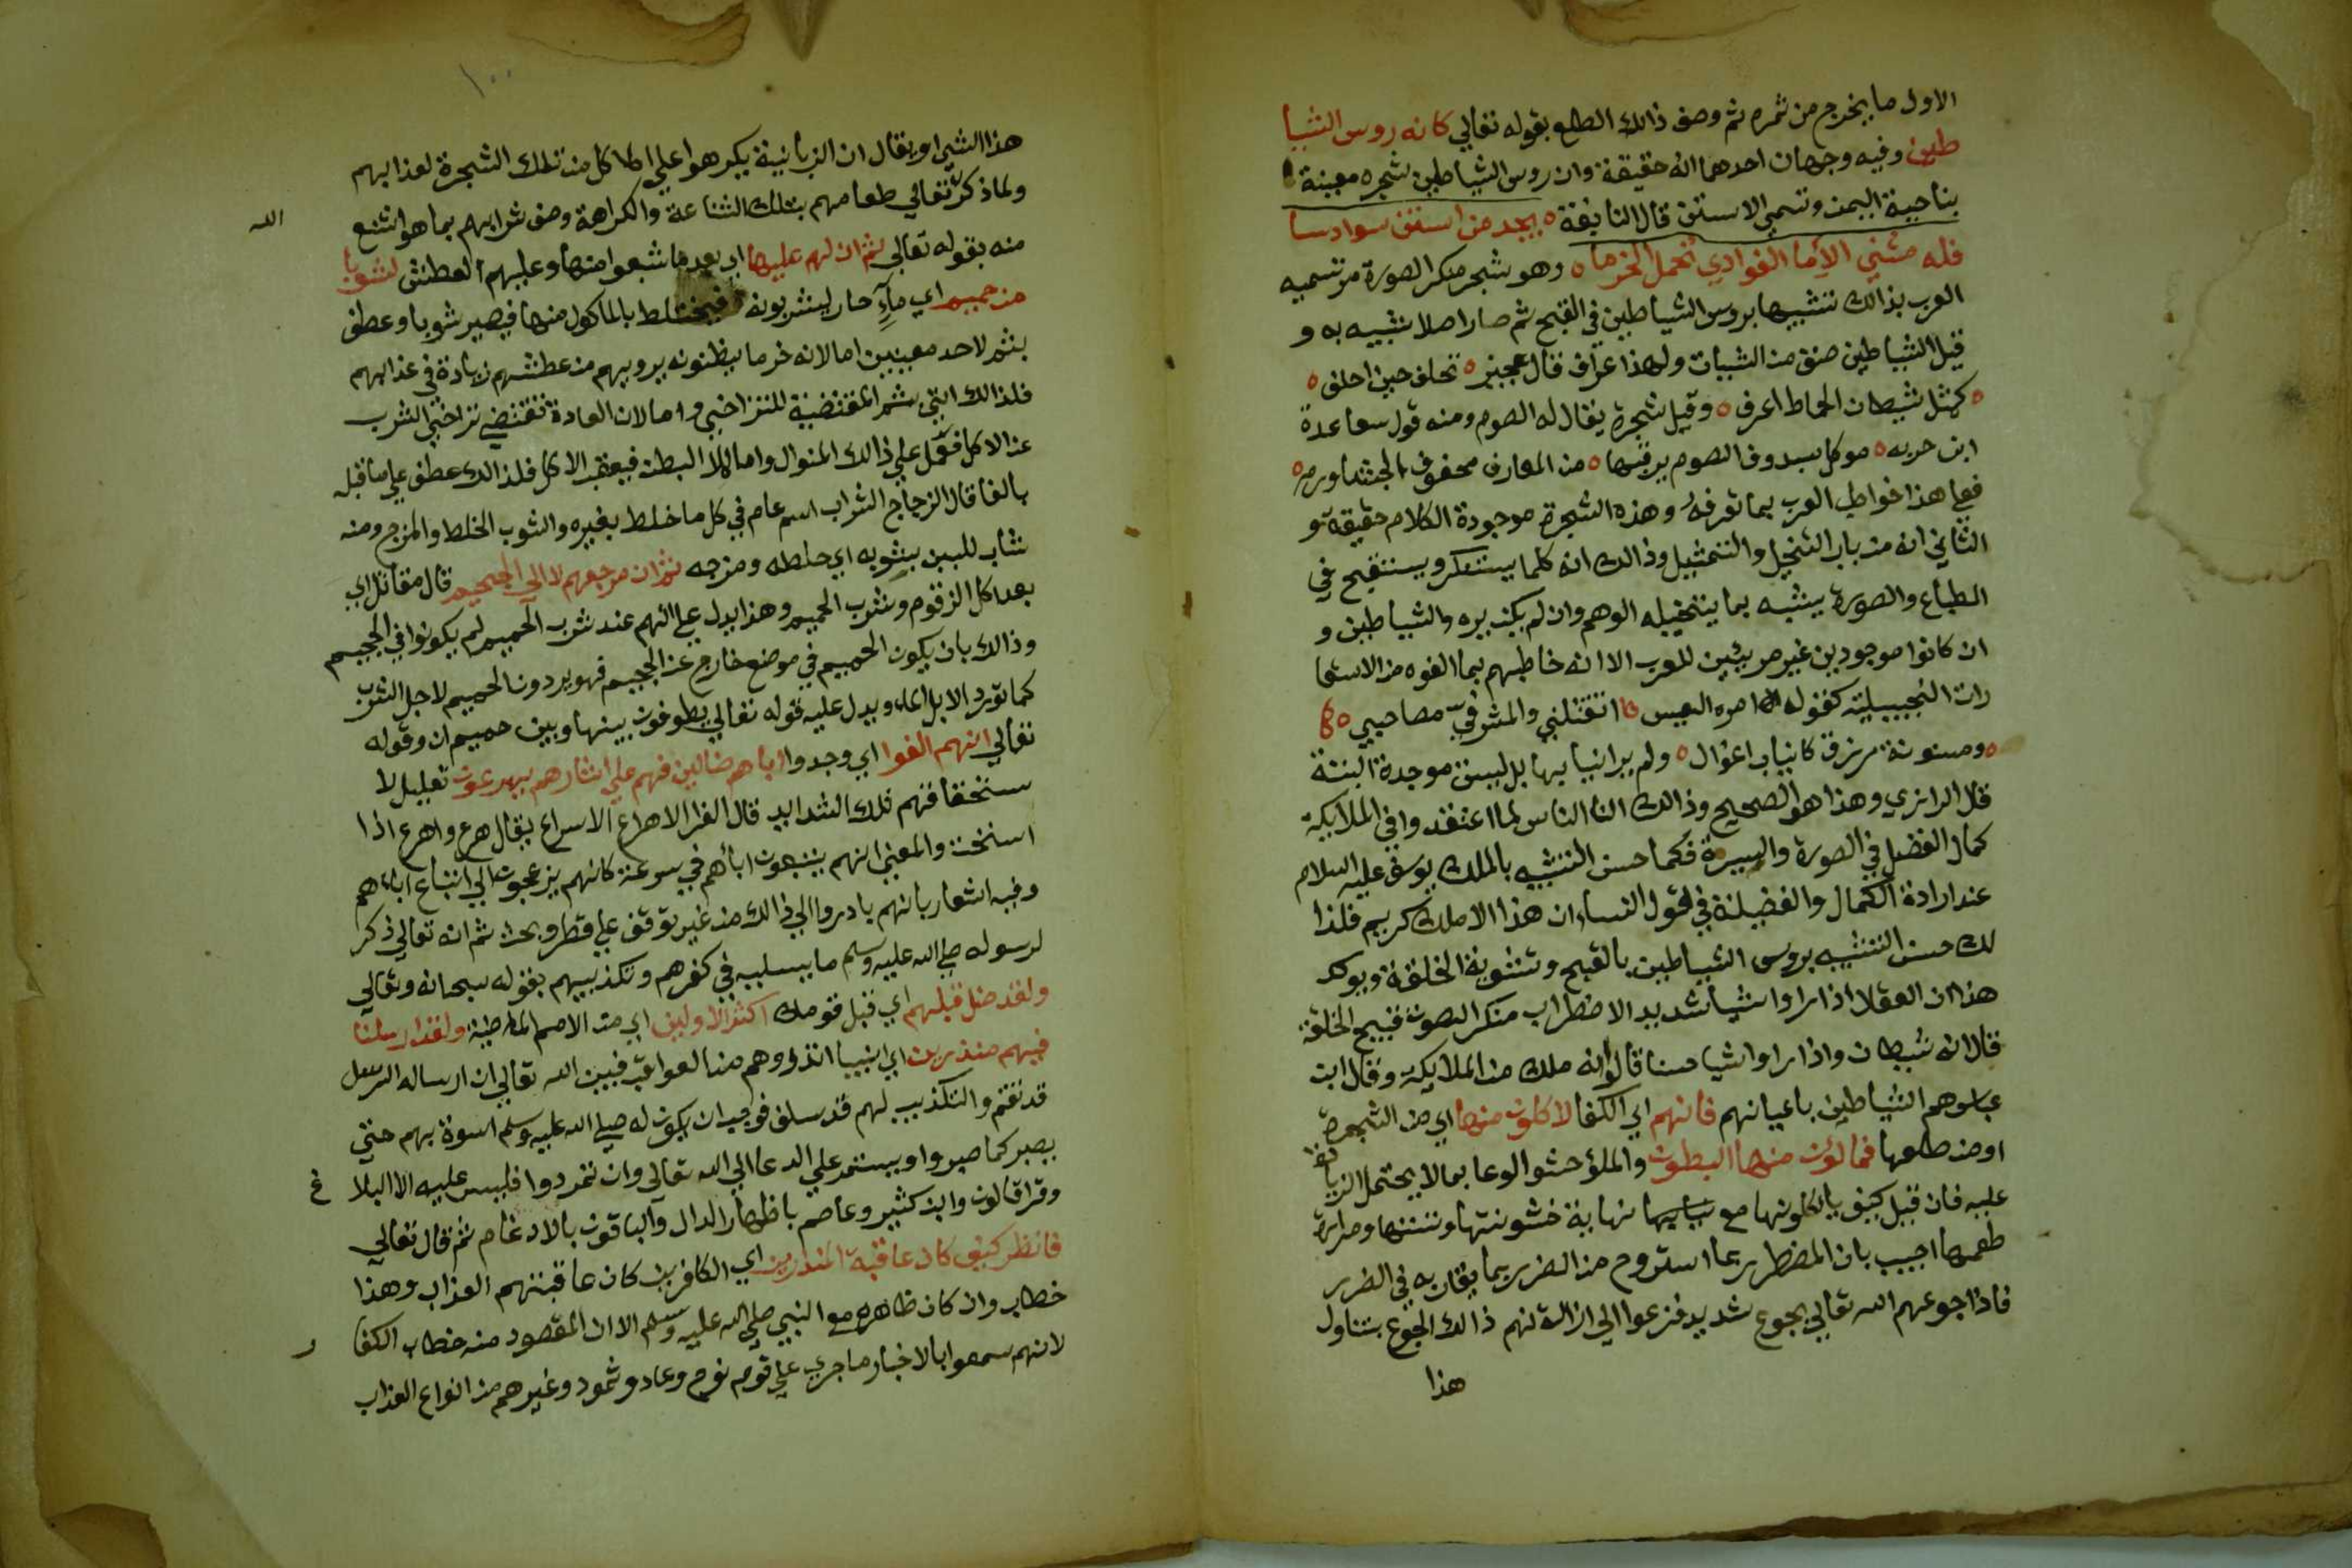 الاول ما يخرج من ثمره ثم وصف ذالك الطلع بقوله تعالي كانه روس الشيا
طين وفيه وجهان احدهما انه حقيقة وان روس الشياطين شجره معينة
بناحية اليمن وتسمي الاستن قال النابغة يحد من استن سوادسا
فله مشي الاما الغوادي تحمل الحزما وهو شجر منكر الصورة مر تسميه
العرب بذالك تشبيها بروس الشياطين في القبح ثم صار اصلا شبيه به و
قيل الشياطين صنف من الشيات ولهذا عراف قال عجيز تحلف حين احلف
كمثل شيطان الحماط اعرف وقيل شجرة يقال له الصوم ومنه قول ساعدة
ابن حربه موكل سدوف الصوم يرقبها من المعارف محفوف
فعلي هذا خواطب العرب بما تعرفه وهذه الشجرة موجودة الكلام حقيقة و
الثاني انه من باب التخيل والتمثيل وذالك انه كلما يستنكر ويستقبح في
الطباع والصورة يشبه بما يتخيله الوهم وان لم يكن يره والشياطين و
ان كانوا موجودين غير مرئيين للعرب الا انه خاطبهم بما الفوه من الاستعا
رات التخييلية كقوله امره القيس اتقتلني والمشرفي مصاحبي
ومسنونة مرزق كانياب اغوال ولم ير انيابها بل ليست موجدة البتة
قال الرازي وهذا هو الصحيح وذالك ان الناس لما اعتقدوا في الملايكة
كمال الفضل في الصورة والسيرة فكما حسن التشبيه بالملك يوسف عليه السلام
عند ارادة الكمال والفضيلة في قول النساء ان هذا الا ملك كريم فكذا
لك حسن التشبيه بروس الشياطين بالقبح وتشوية الخلقة ويوكد
هذا ان العقلا اذا راوا شيا شديد الاضطراب منكر الصوت قبيح الخلقة
قالا انه شيطان واذا راوا شيا حسنا قالوا انه ملك من الملايكة وقال ابن
عباس هم الشياطين باعيانهم فانهم اي الكفا لاكلون منها اي من الشجرة
او من طلعها فمالؤن منها البطون والملؤ حشو الوعا بما لا يحتمل الزيا
عليه فان قيل كيف ياكلونها مع نهاية خشونتها ونتنها ومرارة
طعمها اجيب بان المضطر ربما استروح من الضرر بما يقاربه في الضرر
فاذا جوعهم الله تعالي بجوع شديد فزعوا الي ازالة لهم ذالك الجوع بتناول
هذا
١٠٠
هذا الشي او يقال ان الزبانية يكرهوا علي الاكل من تلك الشجرة لعذابهم
ولما ذكر تعالي طعامهم بتلك الشناعة والكراهة وصف شرابهم بما هو اشنع
الله
منه بقوله تعالي ثم ان لهم عليها اي بعد ما شبعوا منها وعليهم العطش لشوبا
من حميم اي مآء حار يشربونه فيختلط بالماكول منها فيصير شوبا وعطف
بثم لاحد معنيين اما لانه خر ما يظنونه يرويهم من عطشهم زيادة في عذابهم
فلذالك اتي بثم المقتضية للتراخي واما لان العادة تقتضي تراخي الشرب
عن الاكل فعمل علي ذالك المنوال واما ملا البطن فيعقب الاكل فلذالك عطف علي ما قبله
بالفا قال الزجاج الشراب اسم عام في كل ما خلط بغيره والشوب الخلط والمزج ومنه
شاب للبن يشوبه اي خلطه ومزجه ثم ان مرجعهم لا الي الجحيم قال مقاتل اي
بعد اكل الزقوم وشرب الحميم وهذا يدل علي انهم عند شرب الحميم لم يكونوا في الجحيم
وذالك بان يكون الحميم في موضع خارج عن الجحيم فهو يردون الحميم لاجل الشرب
كما تورد الابل الماء ويدل عليه قوله تعالي يطوفون بينها وبين حميم ان وقوله
تعالي انهم الفوا اي وجدوا اباهم ضالين فهم علي اثارهم يهرعون تعليل لا
ستحقاقهم تلك الشدايد قال الفرا الاهراع الاسراع يقال هرع واهرع اذا
استحث والمعني انهم يتبعون اباهم في سرعة كانهم يزعجون الي اتباع اباءهم
وفيه اشعار بانهم بادروا الي ذالك من غير توقف علي قطر وبحث ثم انه تعالي ذكر
لرسوله صلي الله عليه وسلم ما يسليه في كفرهم وتكذيبهم بقوله سبحانه وتعالي
ولقد ضل قبلهم اي قبل قومك اكثر الاولين اي من الامم الماضية ولقد ارسلنا
فيهم منذرين اي انبيا انذروهم من العواقب فبين الله تعالي ان ارساله الرسل
قد تقدم والتكذيب لهم قد سلف فوجب ان يكون له صلي الله عليه وسلم اسوة بهم حتي
يصبر كما صبروا ويستمر علي الدعا الي الله تعالي وان تمردوا فليس عليه الا البلا غ
وقرا قالون وابن كثير وعاصم باظهار الدال والباقون بالادغام ثم قال تعالي
فانظر كيف كان عاقبة المنذرين اي الكافرين كان عاقبتهم العذاب وهذا
خطاب وان كان ظاهره مع النبي صلي الله عليه وسلم الا ان المقصود منه خطاب الكفا ر
لانهم سمعوا بالاخبار ما جري علي قوم نوح وعاد وثمود وغيرهم من انواع العذاب